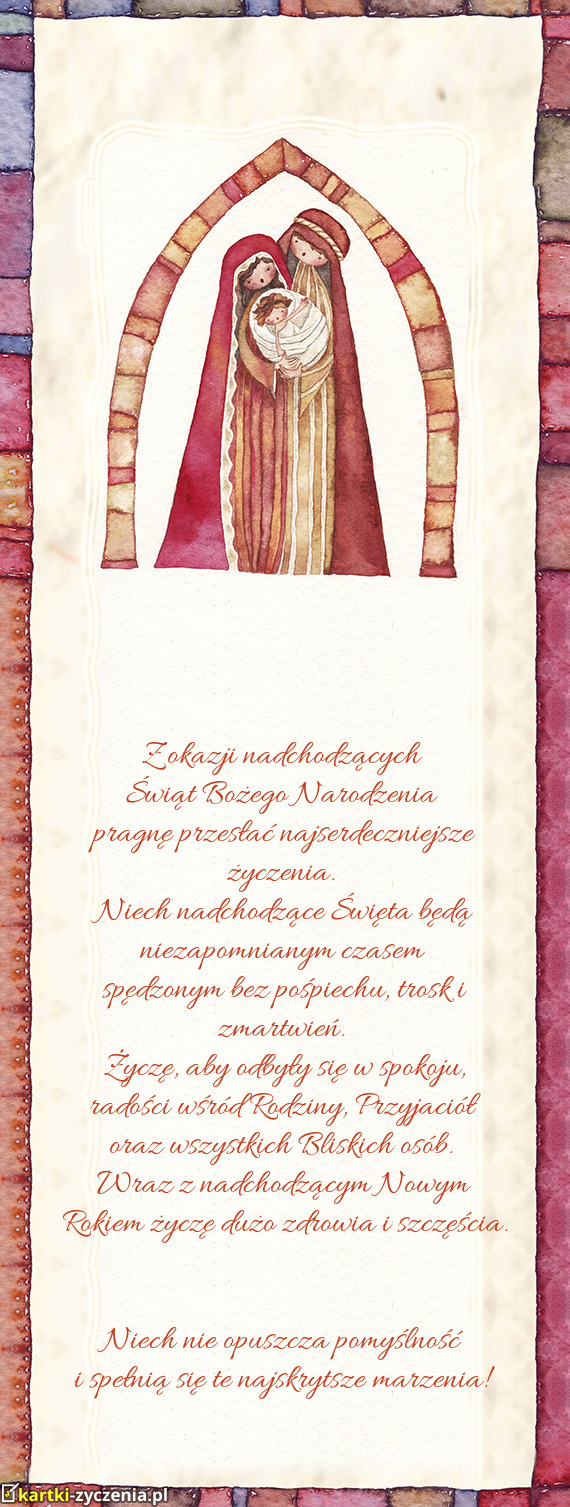 Z okazji nadchodzących
Świąt Bożego Narodzenia
pragnę przesłać najserdeczniejsze
życzenia.
Niech nadchodzące Święta będą
niezapomnianym czasem
spędzonym bez pośpiechu, trosk i
zmartwień.
Życzę, aby odbyły się w spokoju,
radości wśród Rodziny, Przyjaciół
oraz wszystkich Bliskich osób.
Wraz z nadchodzącym Nowym
Rokiem życzę dużo zdrowia i szczęścia.
Niech nie opuszcza pomyślność
i spełnią się te najskrytsze marzenia!
kartki-zyczenia.pl